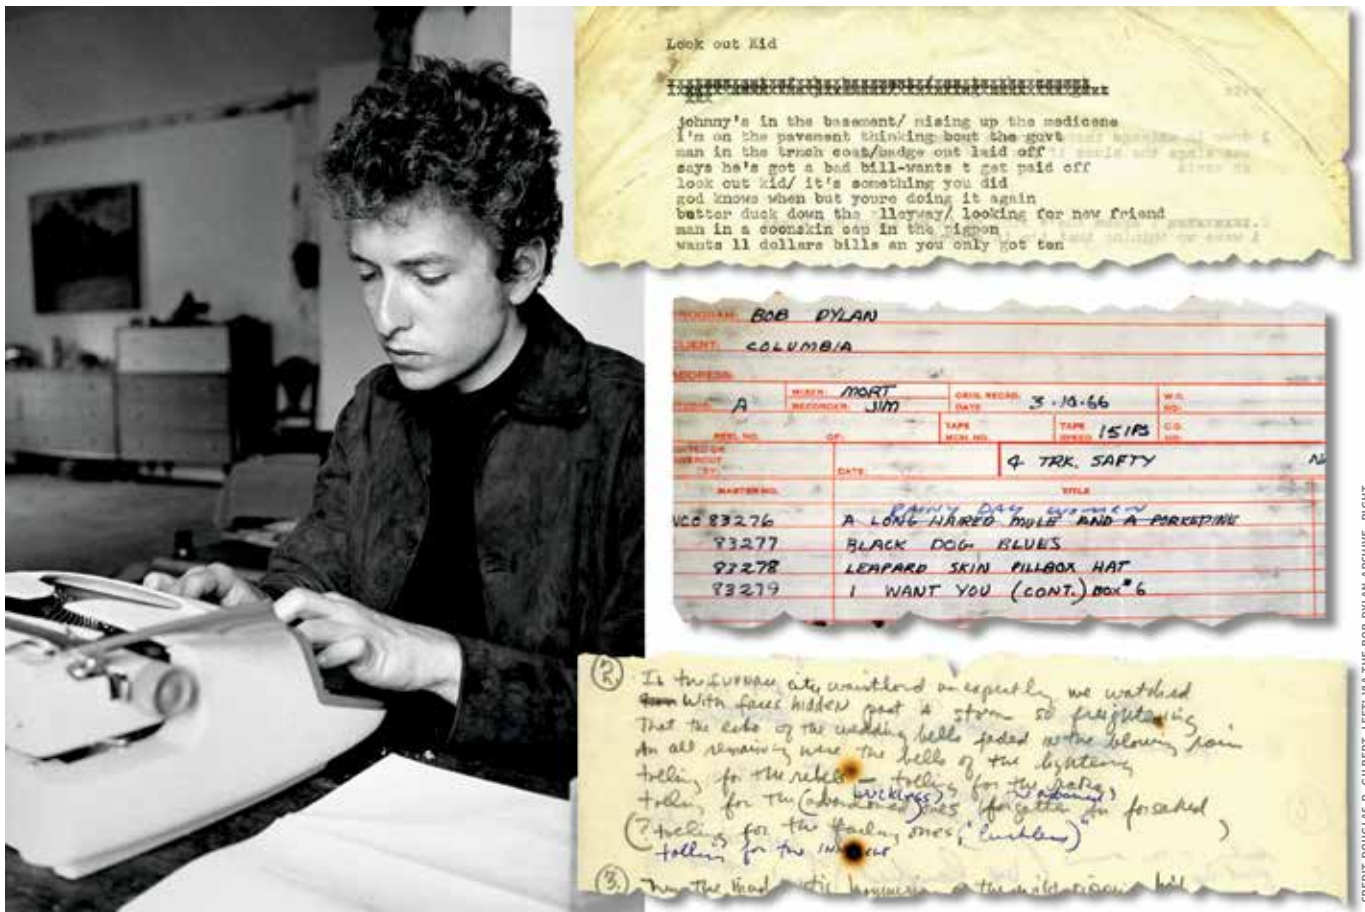 Look out Kid
johnny's in the basement/ mising up the medicene
I'm on the pavement thinking bout the govt
man in the trnch coat/badge out laid off
says he's got a bad bill-wants t get paid off
look out kid/ it's something you did
god knows when but youre doing it again
better duck down the lleyway/ looking for new friend
man in a coonskin cap in the pigpen
wants 11 dollars bills an you only got ten
PROGRAM: BOB DYLAN
CLIENT: COLUMBIA
ADDRESS:
STUDIO: A MIXER: MORT ORIG. RECRD. 3-10-66 W.O.
RECORDER: JIM DATE NO.
REEL NO. OF: TAPE MCH. NO. TAPE SPEED 15 IPS C.O. NO.
BY: DATE: 4 TRK. SAFTY
MASTER NO. TITLE
RAINY DAY WOMEN
NCO 83276 A LONG HAIRED MULE AND A PORKEPINE
83277 BLACK DOG BLUES
83278 LEAPARD SKIN PILLBOX HAT
83279 I WANT YOU (CONT.) BOX #6
2. In the furnace city, we watched
With faces hidden past a storm so freightening
That the echo of the wedding bells faded in the blowing rain
An all remaining were the bells of the lightening
tolling for the rebel — tolling for the rake
luckless
tolling for the (abandoned) ones forgotten an forsaked
(? tolling for the ones, "luckless" )
tolling for the
3. the mad
CREDIT DOUGLAS R. GILBERT, LEFT; VIA THE BOB DYLAN ARCHIVE, RIGHT